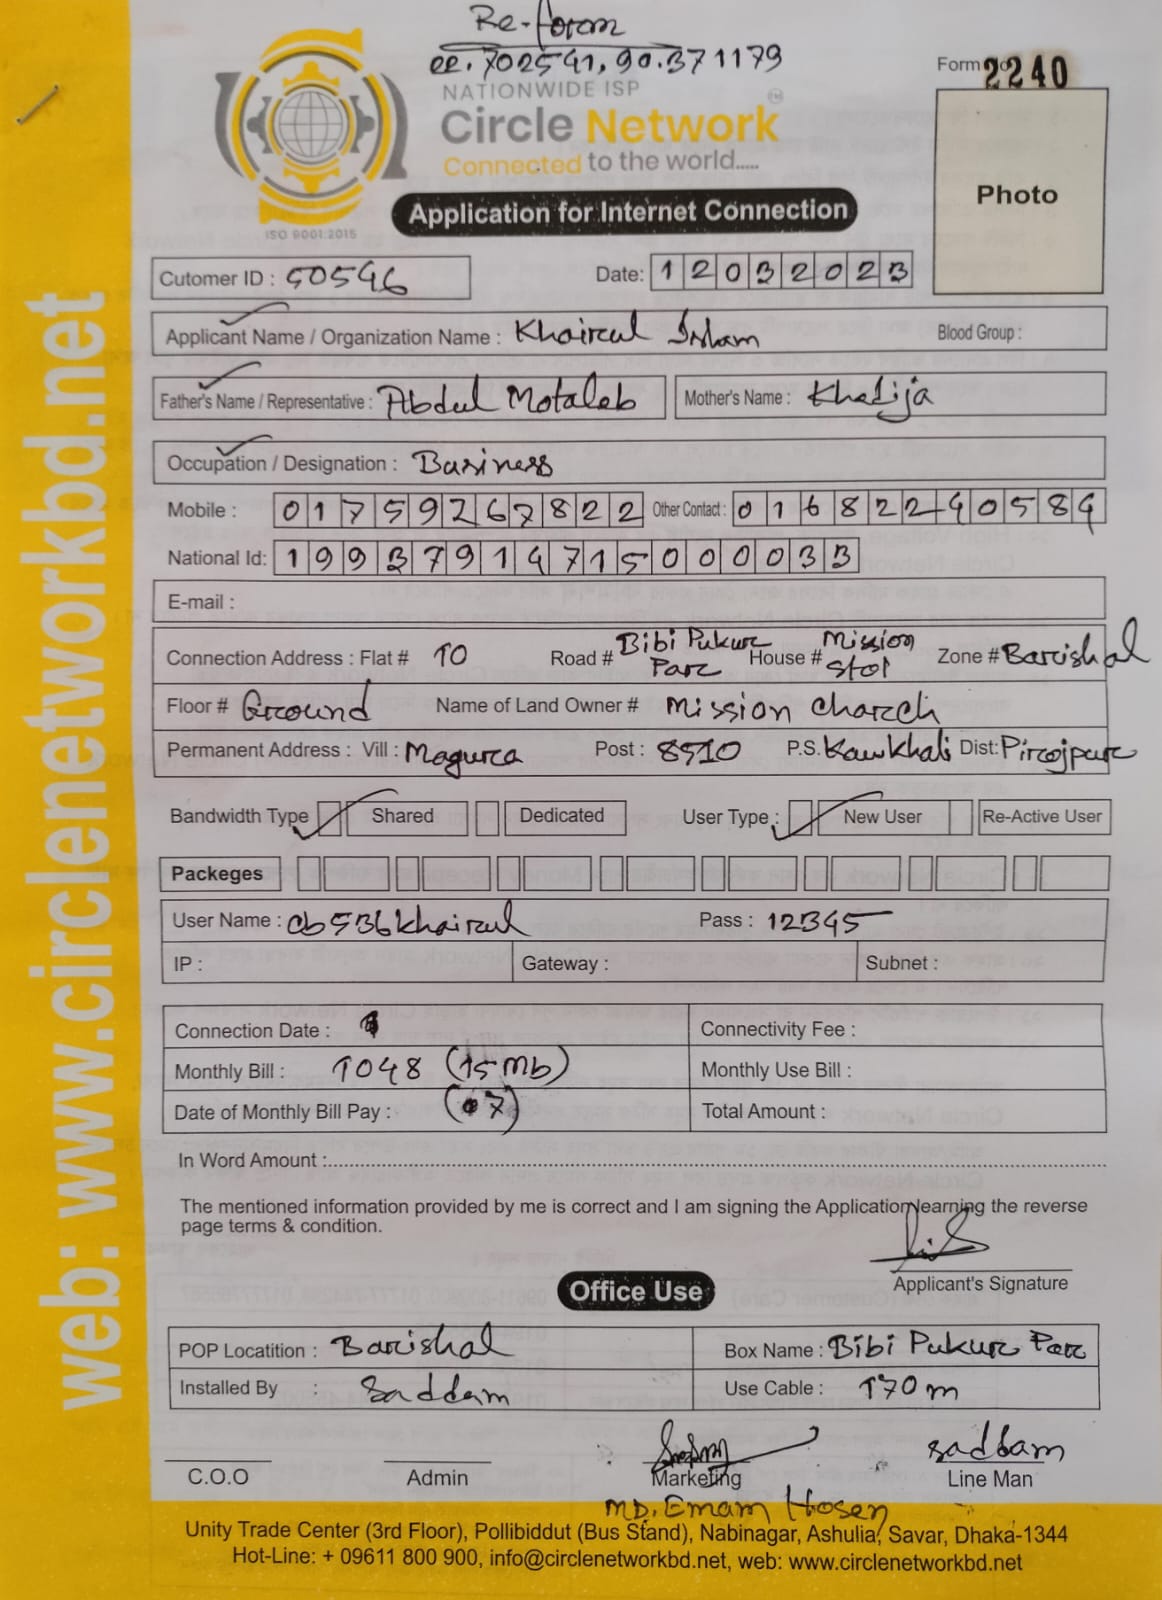 Re-form
22.702541, 90.371179
NATIONWIDE ISP
Circle Network
Connected to the world.....
ISO 9001:2015
Form No 2240
Photo
Application for Internet Connection
Cutomer ID : 50546
Date: 12032023
Applicant Name / Organization Name : Khairul Islam Blood Group :
Father's Name / Representative : Abdul Motaleb Mother's Name : Khadija
Occupation / Designation : Business
Mobile : 01759267822 Other Contact : 01682240584
National Id: 19937914715000033
E-mail :
Connection Address : Flat # 10 Road # Bibi Pukur Par House # Mission Zone # Barishal
Floor # Ground Name of Land Owner # Mission Charch
Permanent Address : Vill : Magura Post : 8510 P.S. Kawkhali Dist: Pirojpur
Bandwidth Type Shared Dedicated User Type : New User Re-Active User
Packeges
User Name : cb536khairul Pass : 12345
IP : Gateway : Subnet :
Connection Date : Connectivity Fee :
Monthly Bill : 1048 (15Mb) Monthly Use Bill :
Date of Monthly Bill Pay : (07) Total Amount :
In Word Amount :
The mentioned information provided by me is correct and I am signing the Application learning the reverse
page terms & condition.
Applicant's Signature
Office Use
POP Locatition : Barishal Box Name : Bibi Pukur Par
Installed By : Saddam Use Cable : 170m
saddam
C.O.O Admin Marketing Line Man
MD. Emam Hosen
Unity Trade Center (3rd Floor), Pollibiddut (Bus Stand), Nabinagar, Ashulia, Savar, Dhaka-1344
Hot-Line: + 09611 800 900, info@circlenetworkbd.net, web: www.circlenetworkbd.net
web: www.circlenetworkbd.net